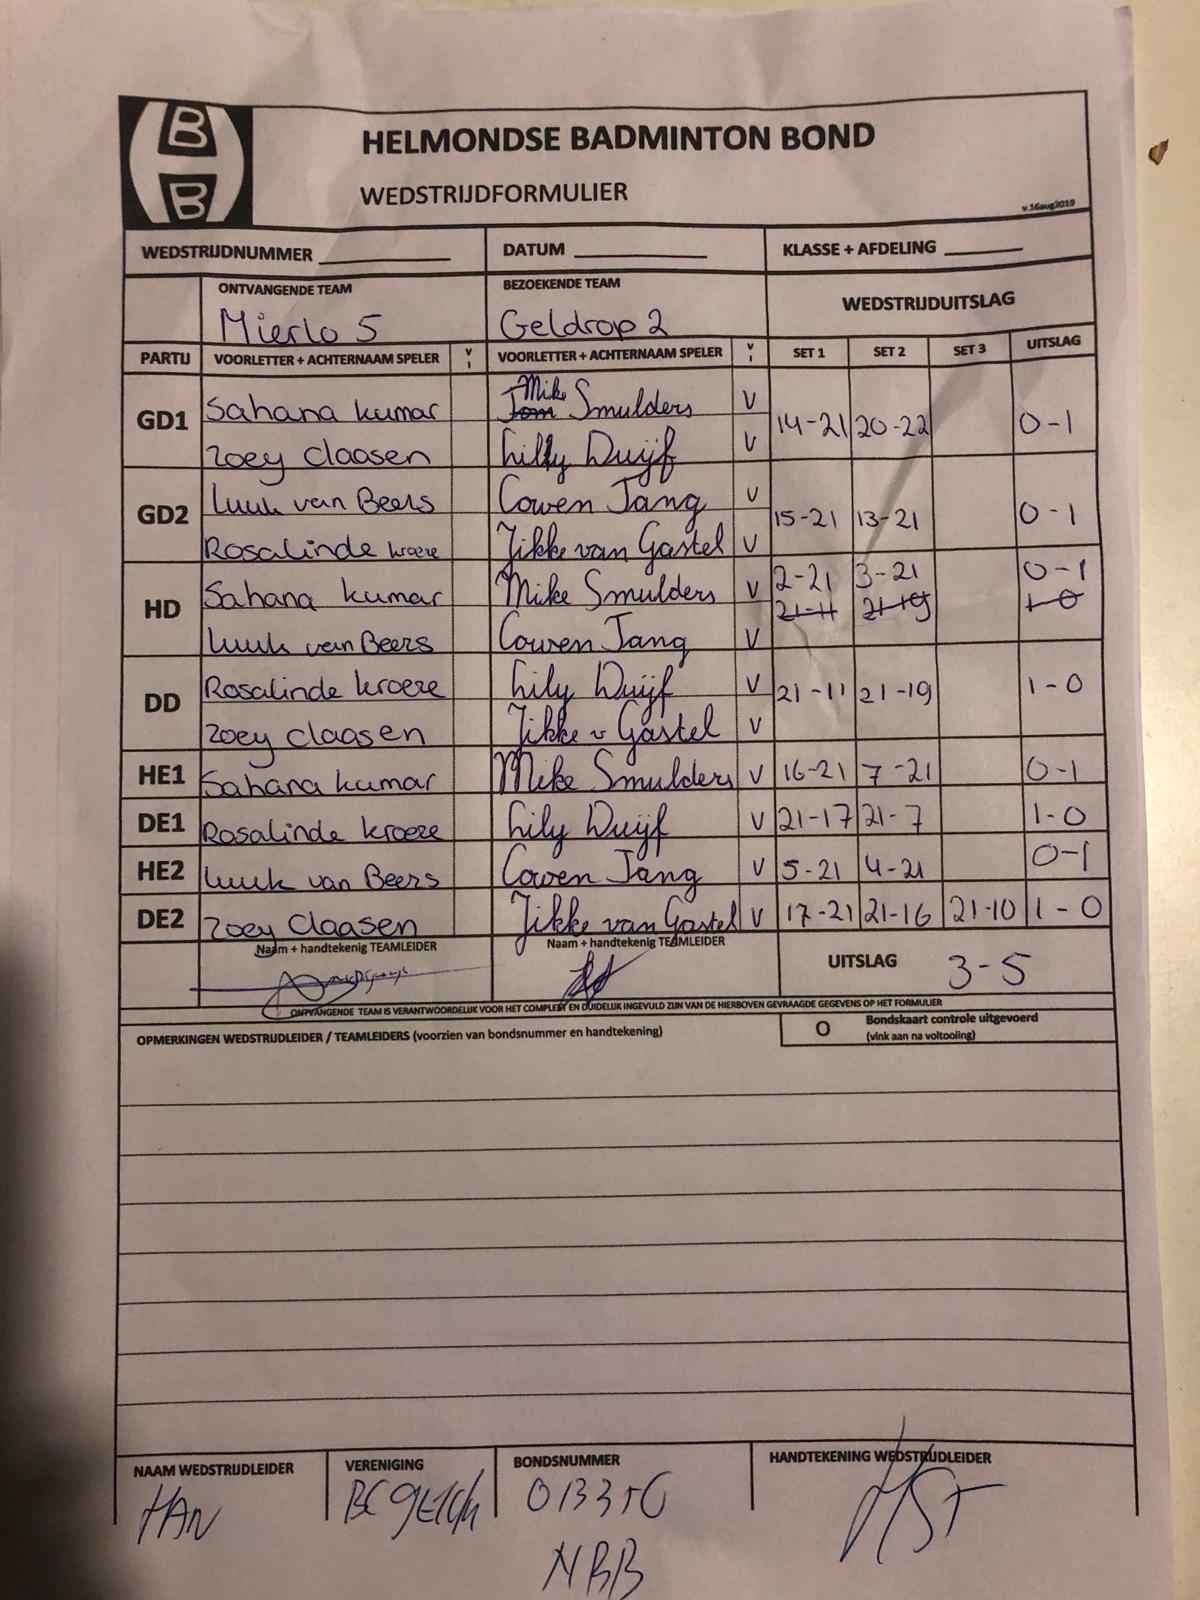 B
B
HELMONDSE BADMINTON BOND
WEDSTRIJDFORMULIER
v.16aug2019
WEDSTRIJDNUMMER DATUM KLASSE + AFDELING
ONTVANGENDE TEAM BEZOEKENDE TEAM WEDSTRIJDUITSLAG
Mierlo 5 Geldrop 2
PARTIJ VOORLETTER + ACHTERNAAM SPELER V I VOORLETTER + ACHTERNAAM SPELER V I SET 1 SET 2 SET 3 UITSLAG
GD1 Sahana kumar Mike Smulders V 14-21 20-22 0-1
Zoey Claasen Lilly Duijf V
GD2 Luuk van Beers Cowen Jang V 15-21 13-21 0-1
Rosalinde kroeze Jikke van Gastel V
HD Sahana kumar Mike Smulders V 2-21 3-21 0-1
21-11 21-19 1-0
Luuk van Beers Cowen Jang V
DD Rosalinde kroeze Lily Duijf V 21-11 21-19 1-0
Zoey Claasen Jikke v Gastel V
HE1 Sahana kumar Mike Smulders V 16-21 7-21 0-1
DE1 Rosalinde kroeze Lily Duijf V 21-17 21-7 1-0
HE2 Luuk van Beers Cowen Jang V 5-21 4-21 0-1
DE2 Zoey Claasen Jikke van Gastel V 17-21 21-16 21-10 1-0
Naam + handtekenig TEAMLEIDER Naam + handtekenig TEAMLEIDER UITSLAG 3-5
ONTVANGENDE TEAM IS VERANTWOORDELIJK VOOR HET COMPLEET EN DUIDELIJK INGEVULD ZIJN VAN DE HIERBOVEN GEVRAAGDE GEGEVENS OP HET FORMULIER
OPMERKINGEN WEDSTRIJDLEIDER / TEAMLEIDERS (voorzien van bondsnummer en handtekening) O Bondskaart controle uitgevoerd
(vink aan na voltooiing)
NAAM WEDSTRIJDLEIDER VERENIGING BONDSNUMMER HANDTEKENING WEDSTRIJDLEIDER
HAN BC
NBB